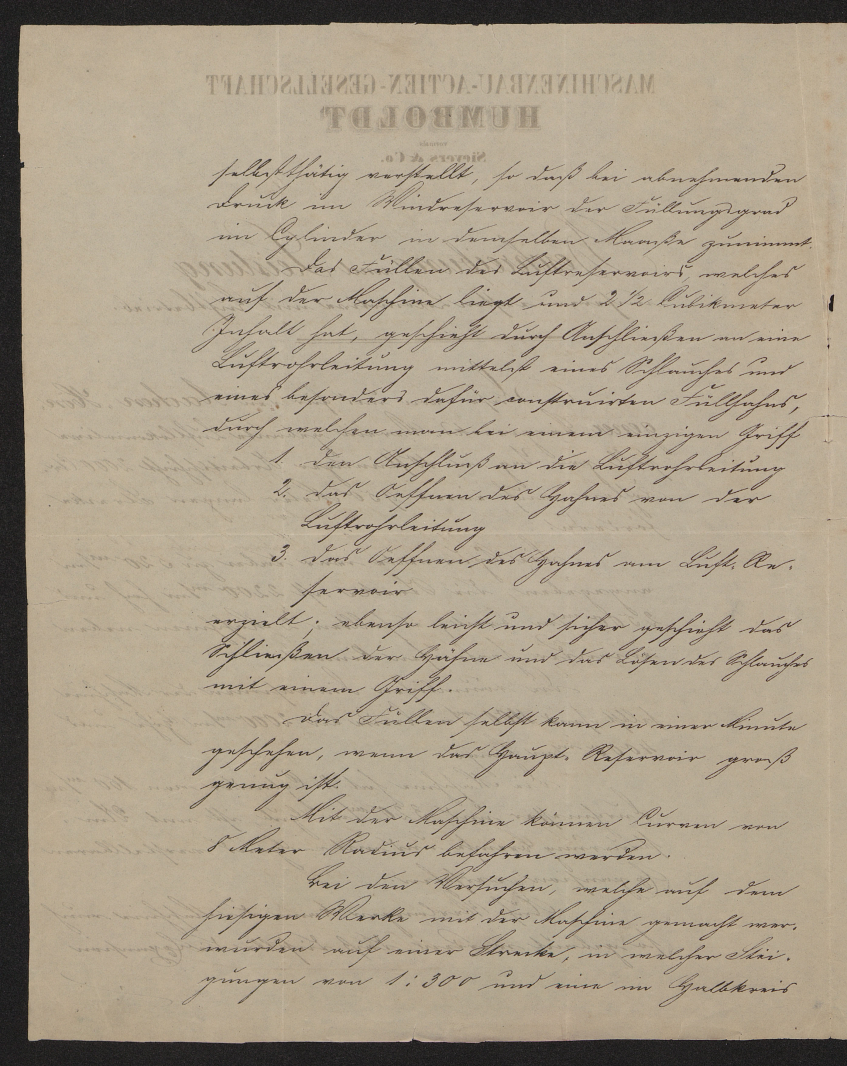 selbstthätig verstellt, so daß bei abnehmenden
Druck im Windreservoir der Füllungsgrad
im Cylinder in demselben Maaße zunimmt.
Das Füllen des Luftreservoirs, welches
auf der Maschine liegt und 2 1/2 Cubikmeter
Inhalt hat, geschieht durch Anschließen an eine
Luftrohrleitung mittelst eines Schlauches und
eines besonders dafür construirten Füllhahns,
durch welchen man bei einem einzigen Griff
1. den Anschluß an die Luftrohrleitung
2. das Oeffnen des Hahnes von der
Luftrohrleitung
3. das Oeffnen des Hahnes am Luft-Re-
servoir
erzielt; ebenso leicht und sicher geschieht das
Schließen der Hähne und das Lösen des Schlauches
mit einem Griff.
Das Füllen selbst kann in einer Minute
geschehen, wenn das Haupt-Reservoir groß
genug ist.
Mit der Maschine können Curven von
8 Meter Radius befahren werden.
Bei den Versuchen, welche auf dem
hiesigen Werke mit der Maschine gemacht wer-
wurden auf einer Strecke, in welcher Stei-
gungen von 1:300 und eine im Halbkreis
MASCHINENBAU-ACTIEN-GESELLSCHAFT
HUMBOLDT
vormals
Sievers & Co.